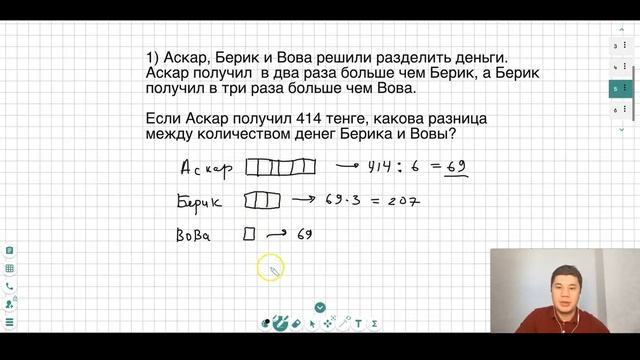 1) Аскар, Берик и Вова решили разделить деньги.
Аскар получил в два раза больше чем Берик, а Берик
получил в три раза больше чем Вова.
Если Аскар получил 414 тенге, какова разница
между количеством денег Берика и Вовы?
Аскар → 414 : 6 = 69
Берик → 69·3 = 207
Вова → 69
3
4
5
6
T Σ